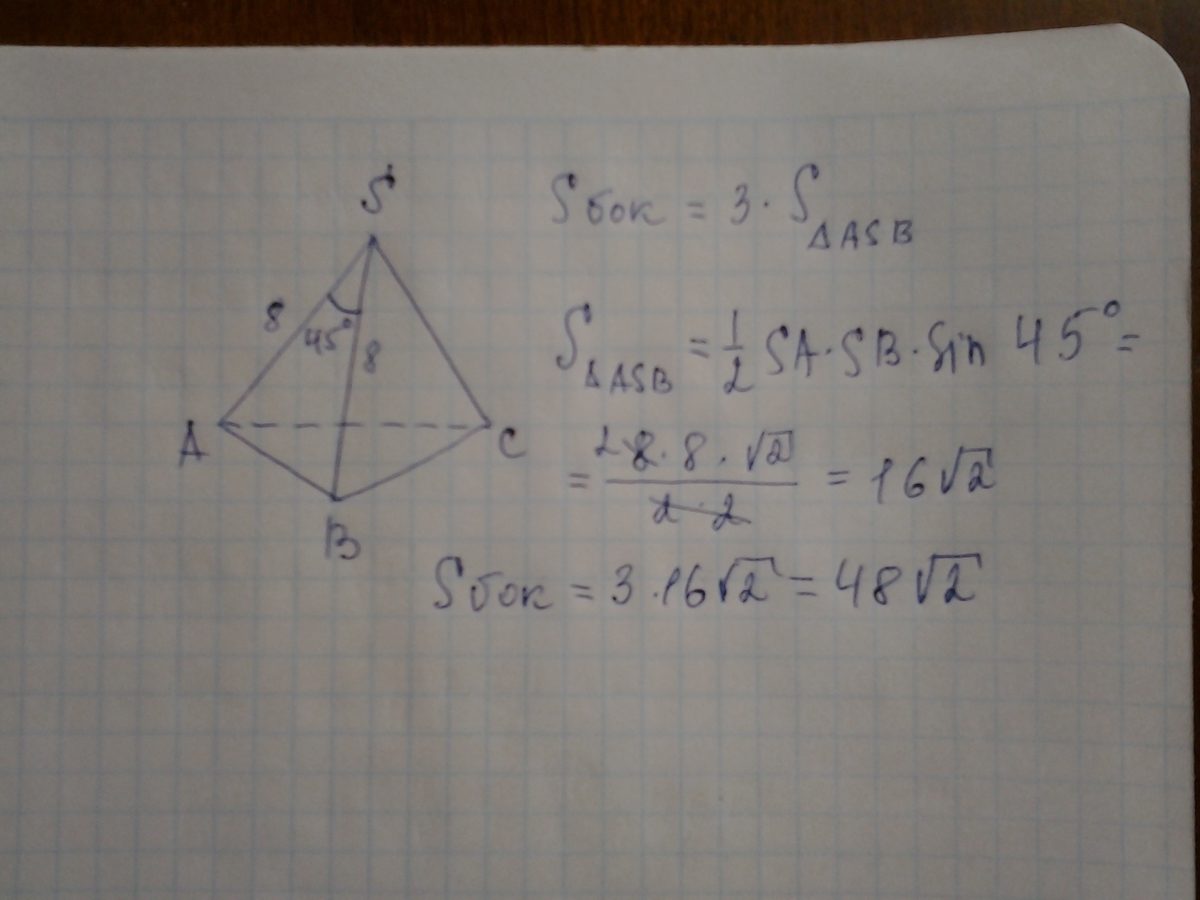 S
8
45°
8
A
C
B
Sбок = 3 · S△ASB
S△ASB = 1/2 SA · SB · Sin 45° =
= 2 8 · 8 · √2 / 2 · 2 = 16√2
Sбок = 3 · 16√2 = 48√2